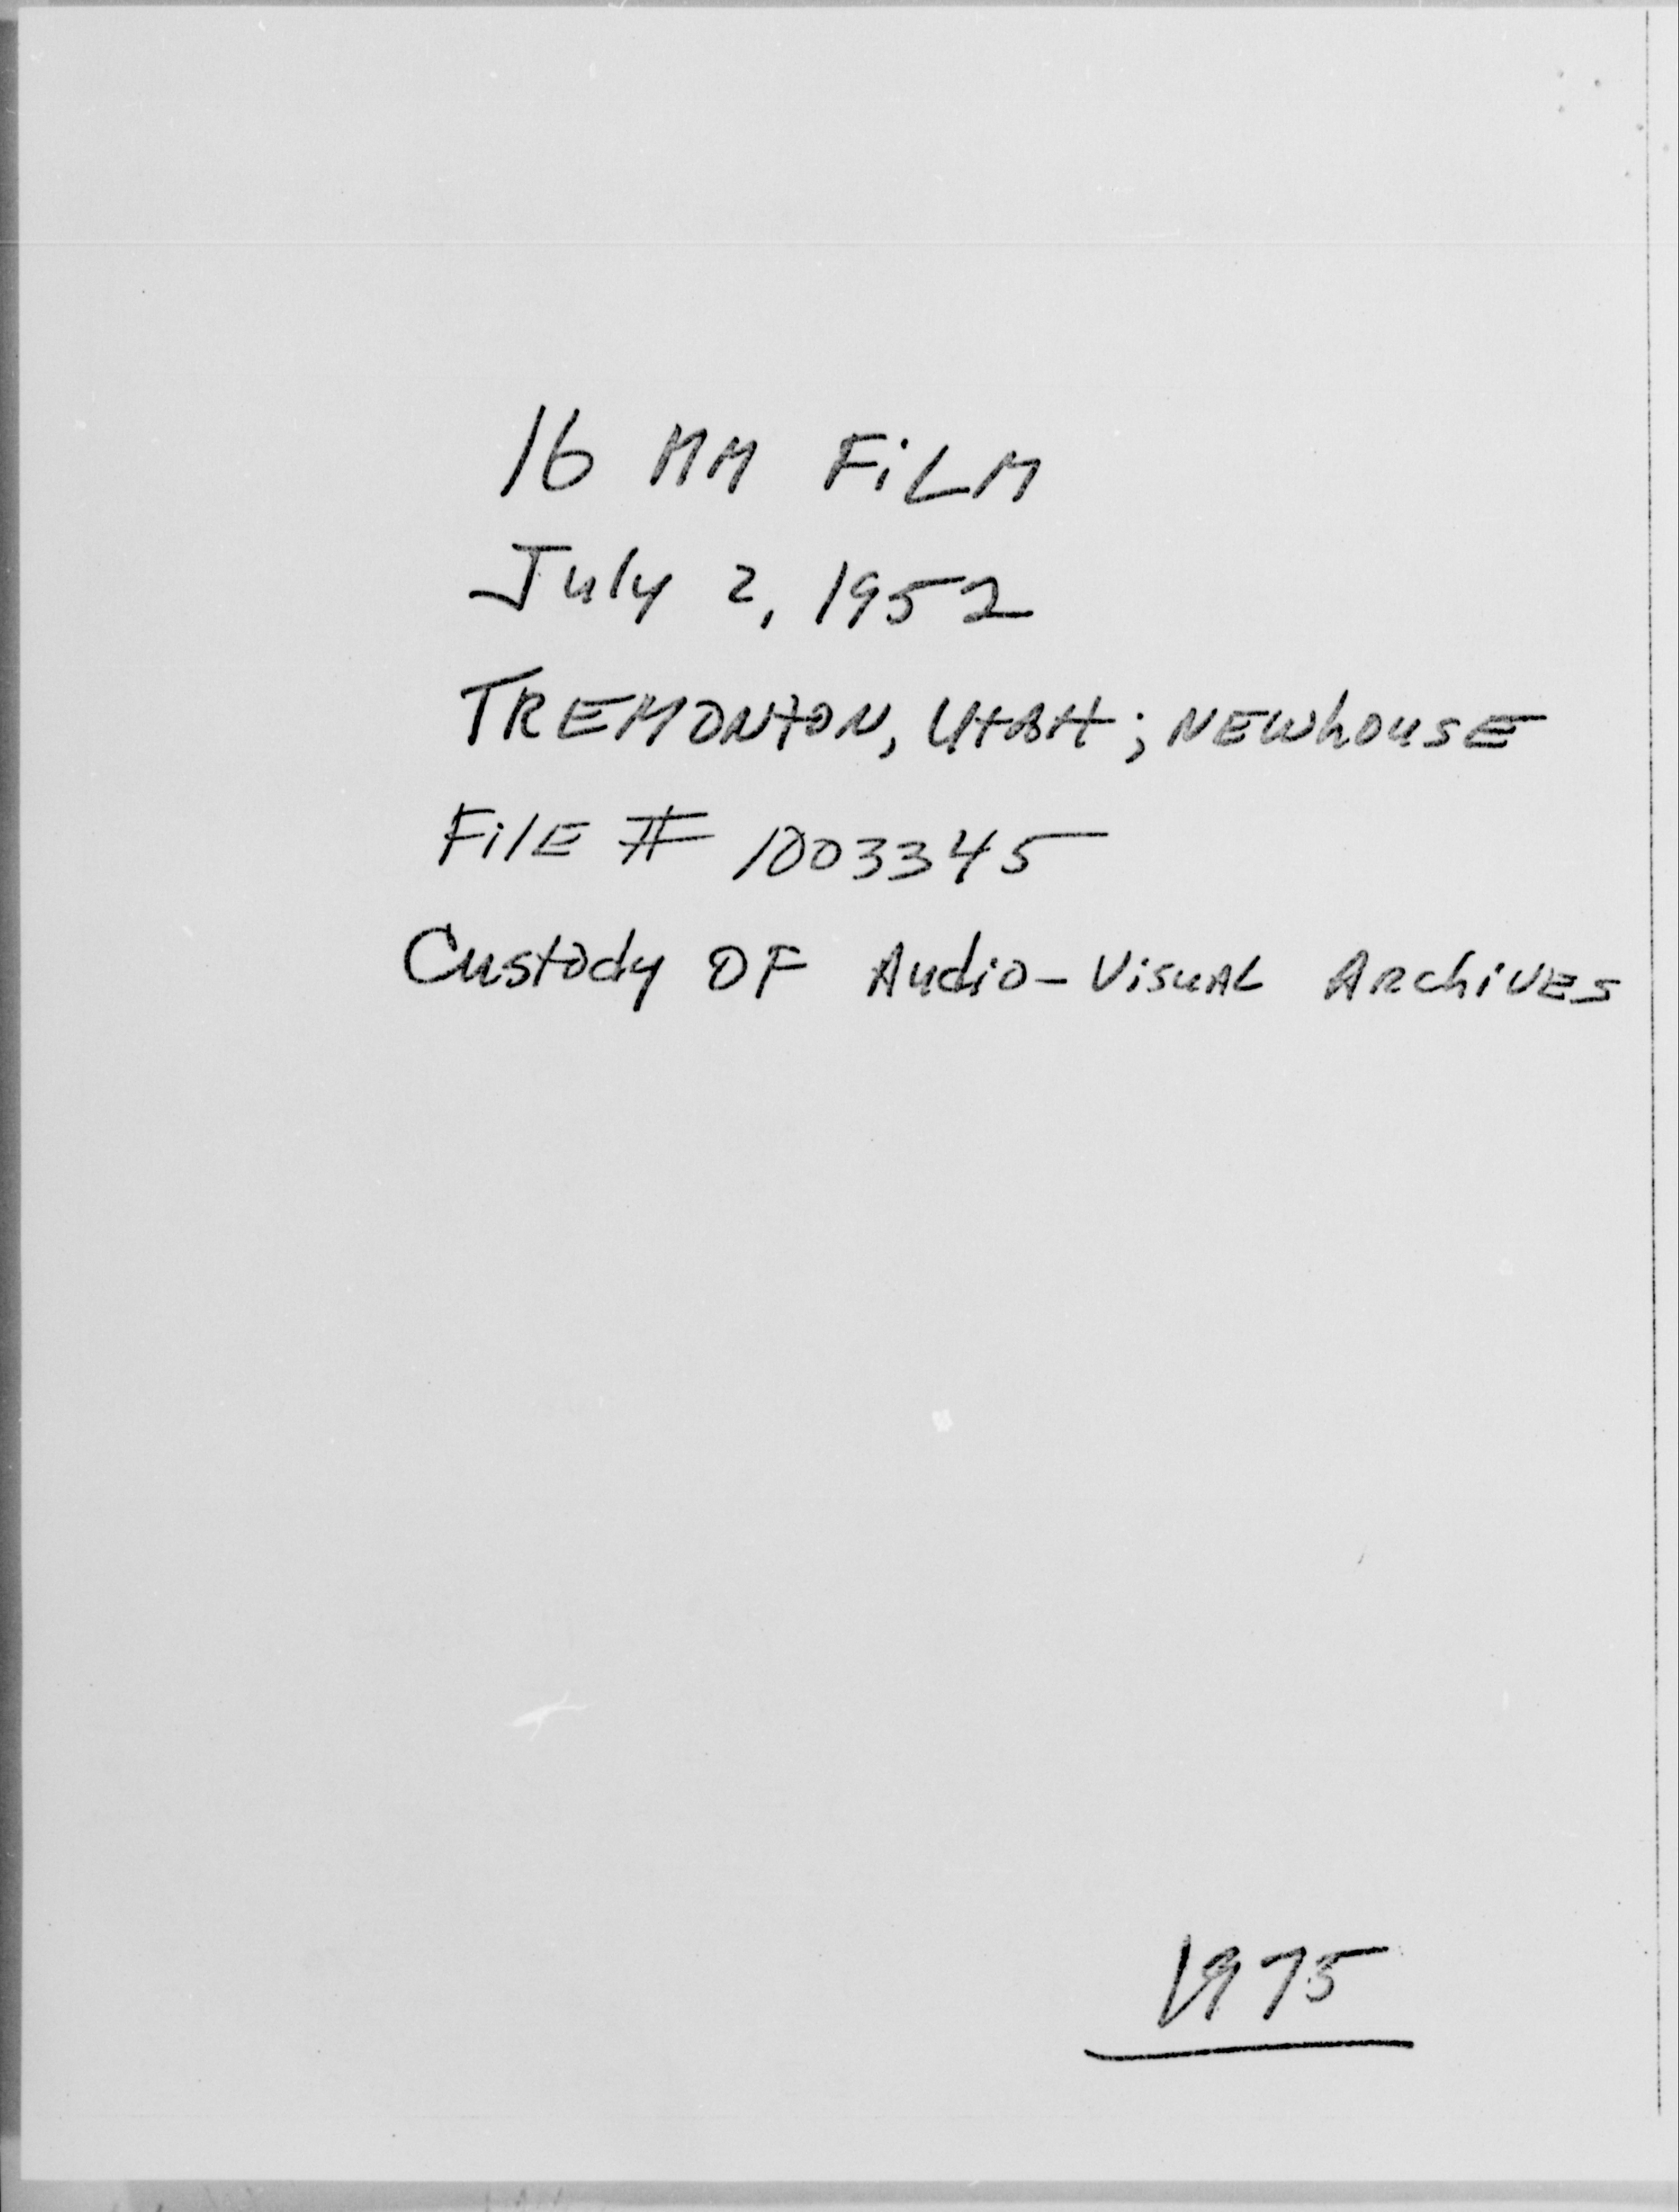 16 MM FiLM
July 2, 1952
TREMONTON, UTAH; NEWhOUSE
FilE # 1003345
Custody OF Audio-VisuAL ARchiVES
1975